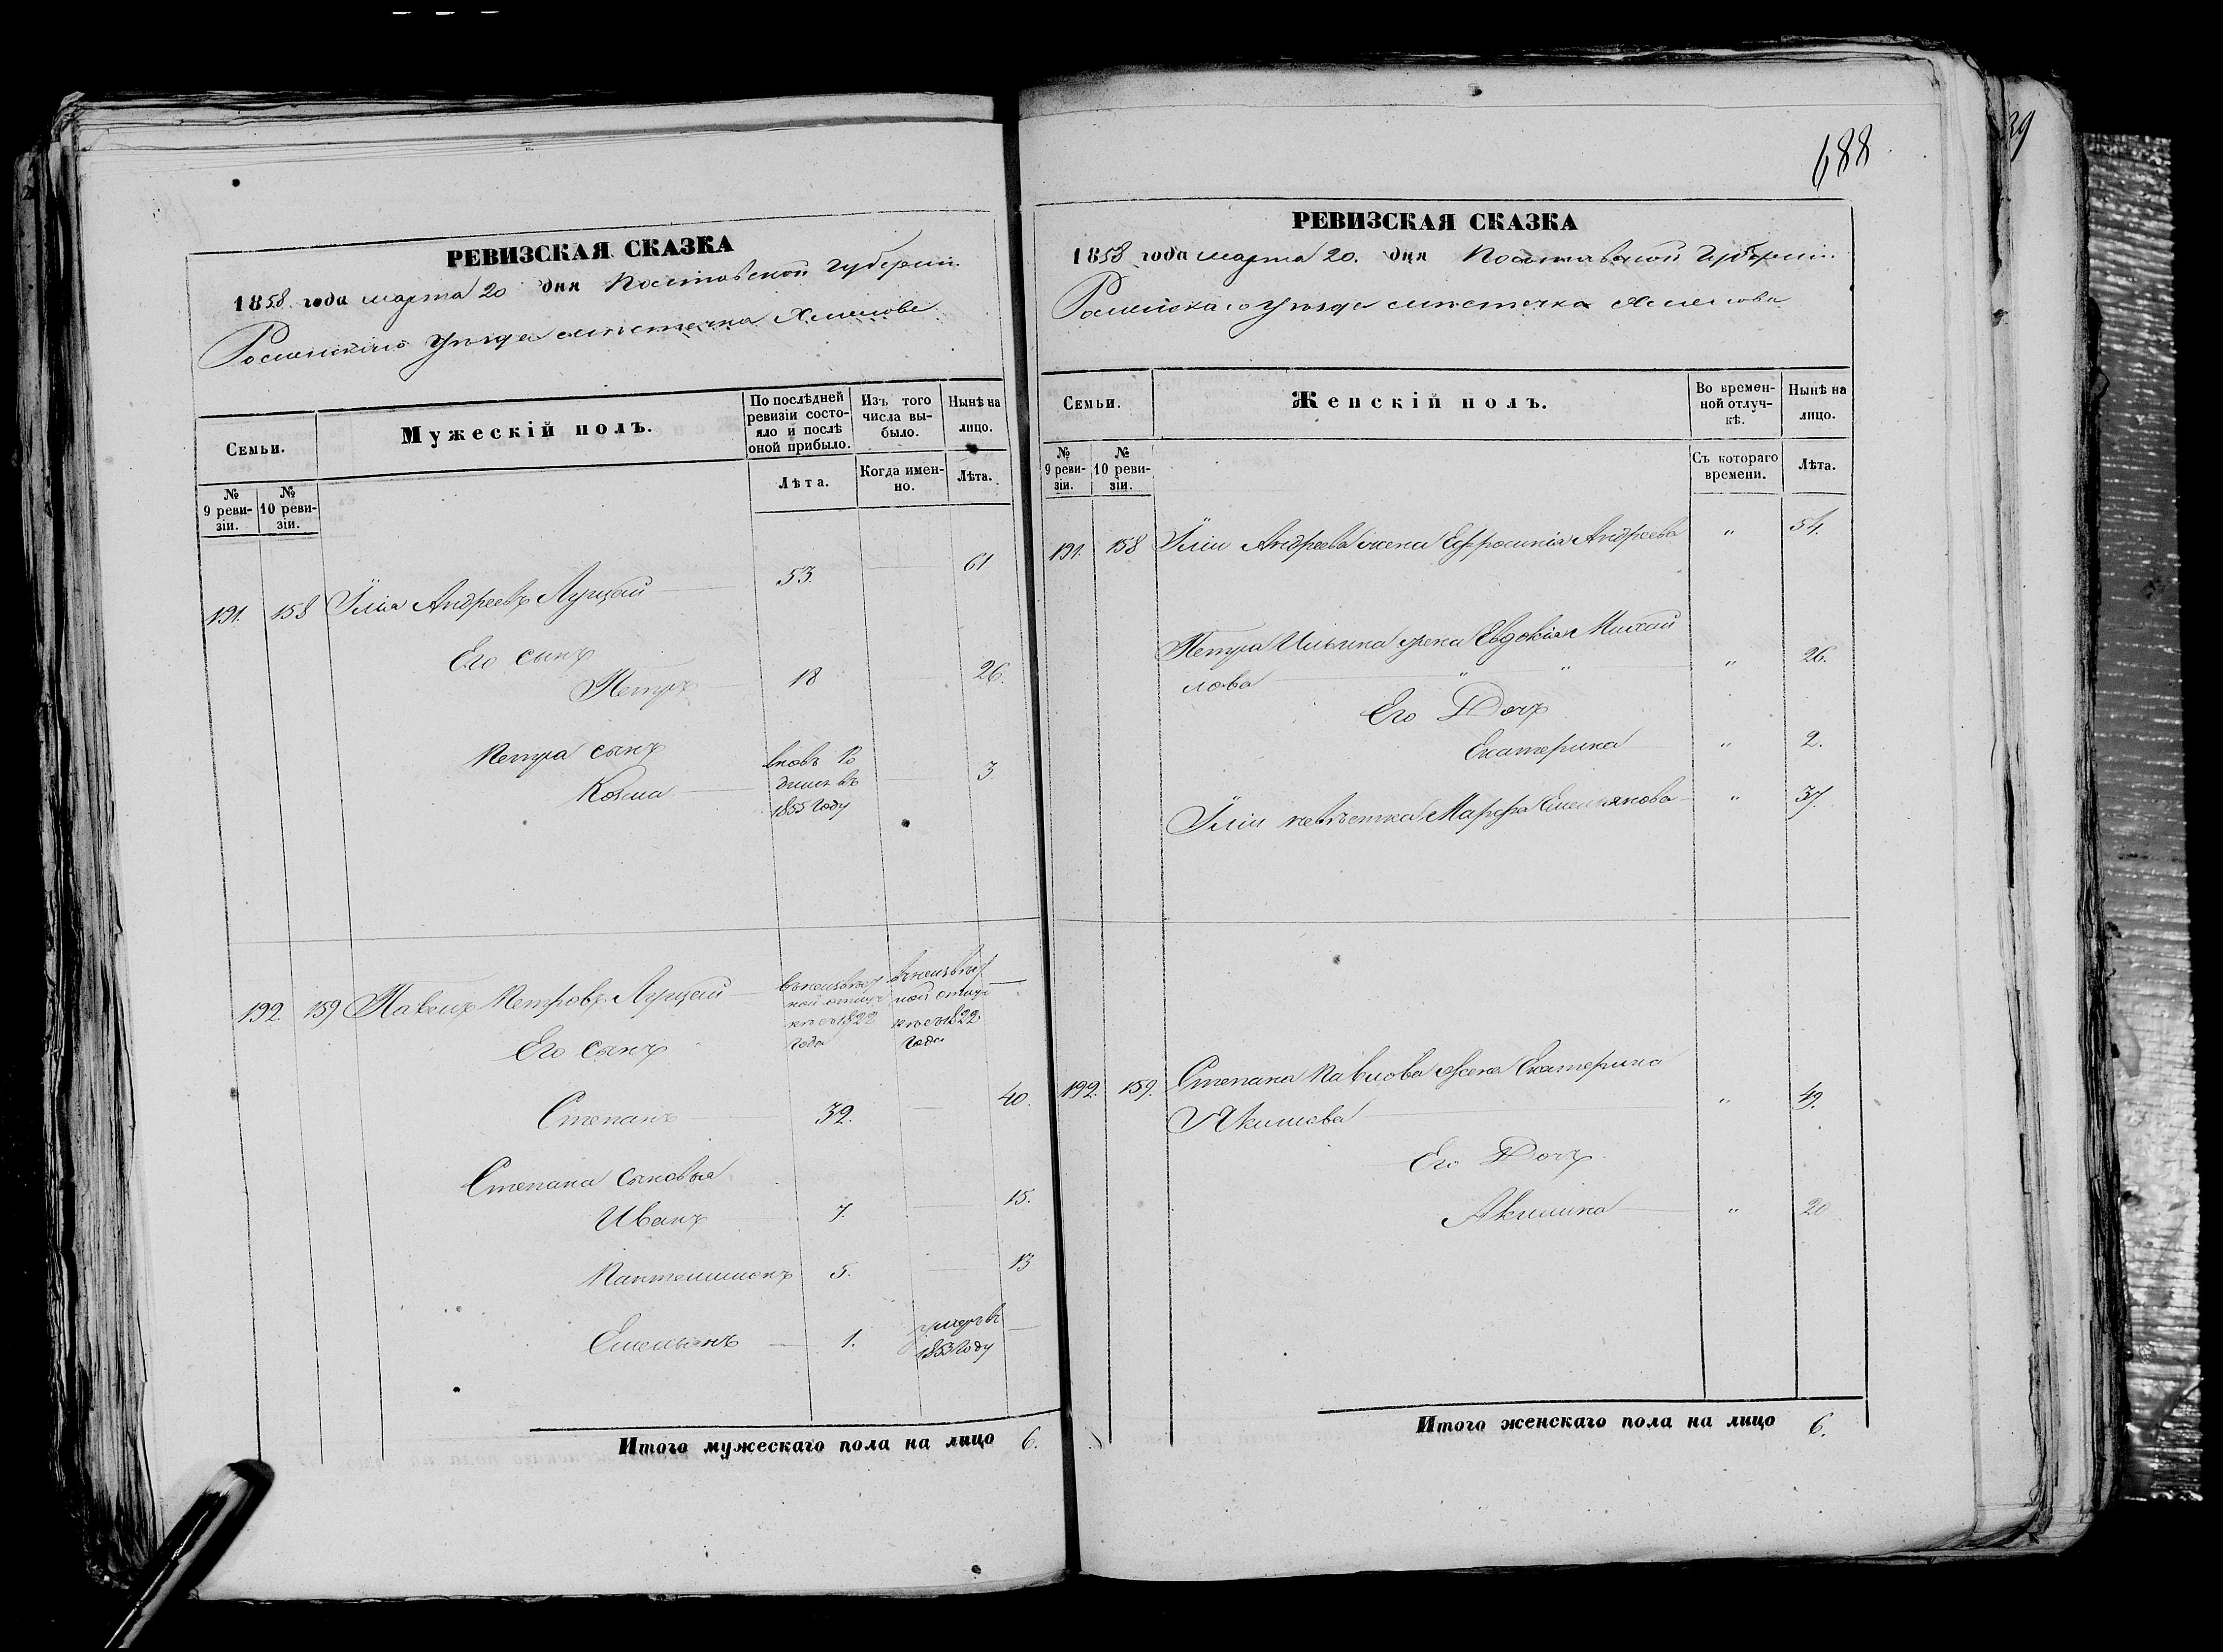 688
39
РЕВИЗСКАЯ СКАЗКА
1858 года марта 20 дня Полтавской Губернии
Роменского Уезда местечка Хмелова
Семьи.
Мужескій полъ.
По послѣдней ревизіи состо-
яло и послѣ
оной прибыло.
Изъ того
числа вы-
было.
Нынѣ на
лицо.
№
9 реви-
зіи.
№
10 реви-
зіи.
Лѣта.
Когда имен-
но.
Лѣта.
191. 158 Илія Андреевъ Луцкий 53. 61
Его сынъ
Петръ 18 26.
Петра сынъ
Козма
вновь Ро
дился въ
1855 Году
3
192. 159 Павелъ Петровъ Луцкий
въ неизвѣст
ной отлуч
кѣ съ 1822
Года
въ неизвѣст
ной отлуч
кѣ съ 1822
Года
Его сынъ
Степанъ 32. 40.
Степана сыновья
Иванъ 7. 15.
Пантелимонъ 5. 13
Емельянъ 1.
умеръ въ
1853 Году
Итого мужескаго пола на лицо 6.
РЕВИЗСКАЯ СКАЗКА
1858 года марта 20. дня Полтавской Губернии
Роменскаго Уезда местечка Хмелова
Семьи.
Женскій полъ.
Во времен-
ной отлуч-
кѣ.
Нынѣ на
лицо.
№
9 реви-
зіи.
№
10 реви-
зіи.
Съ котораго
времени.
Лѣта.
191. 158 Иліи Андреева жена Ефросинія Андреева " 54.
Петра Ильина жена Евдокія Михай
лова " " " 26.
Его Дочь
Екатерина " 2.
Иліи невѣстка Марфа Емельянова " 37.
192. 159. Степана Павлова жена Екатерина
Якимова " 49.
Его Дочь
Акилина " 20
Итого женскаго пола на лицо 6.